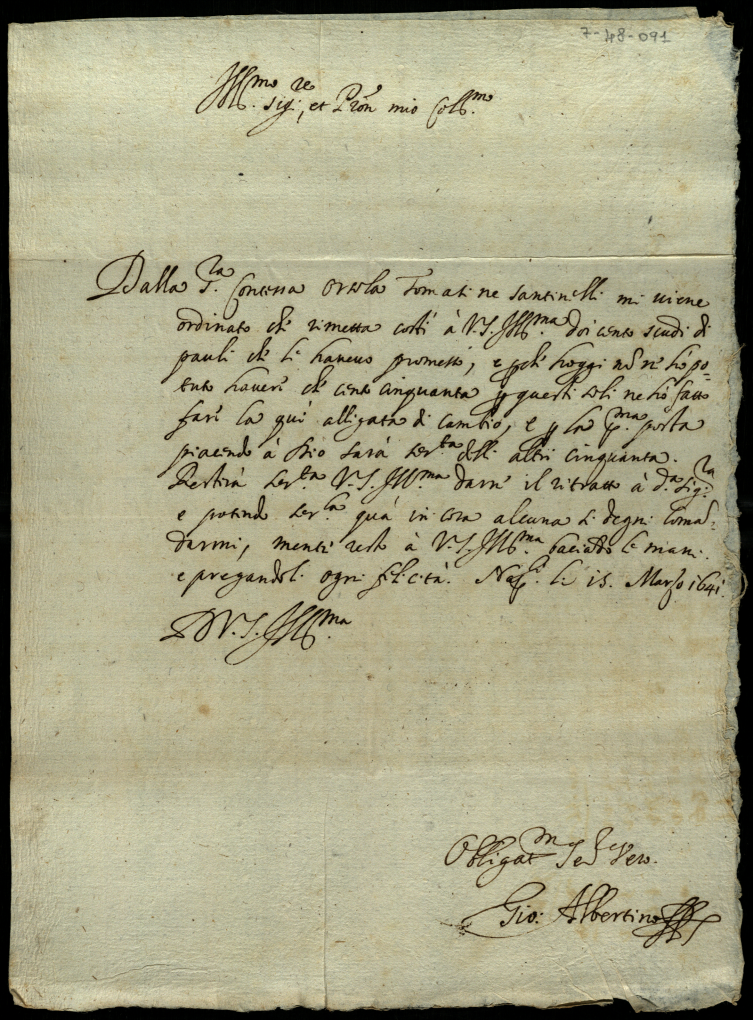 7-48-091
Ill.mo sig.re, et Pron mio Coll.mo
Dalla S.ra Contessa Orsola Tomati ne Santinelli mi viene
ordinato che rimetta costì à V.S. Ill.ma doi cento scudi di
pauli che li havevo promessi, e p che hoggi nõ n'hò po-
tuto havere che cento cinquanta p questi soli ne hò fatto
fare la quì alligata di cambio, e p la p.ma posta
piacendo à Dio sarà ser.ta delli altri cinquanta.
Restirà ser.ta V.S. Ill.ma darne il ritratto à d.a Sig.ra
e potendo ser.la quà in cosa alcuna si degni coman-
darmi, mentre resto à V.S. Ill.ma baciando le mani
e pregandoli ogni felicità. Nap.li li 15. Marzo 1641.
D V.S. Ill.ma
Obligat.m Se.re vero.
Gio: Albertino